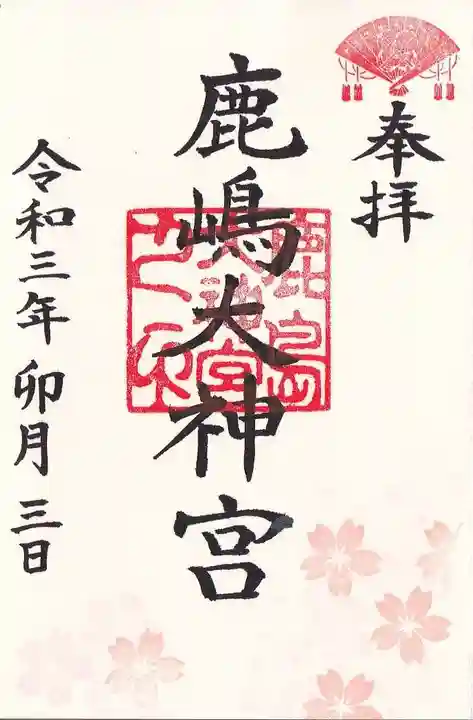 奉拝
鹿嶋大神宮
令和三年卯月三日